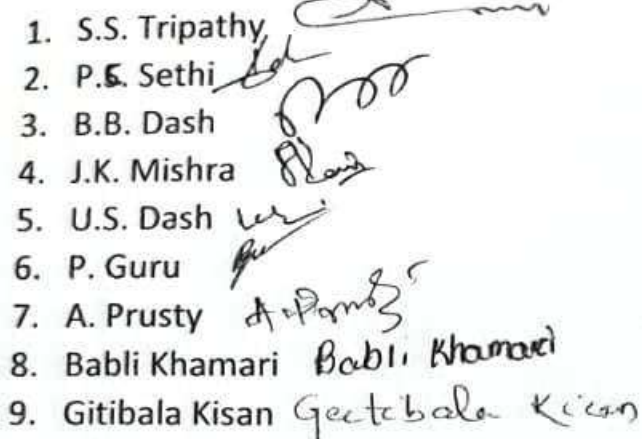 1. S.S. Tripathy
2. P.S. Sethi
3. B.B. Dash
4. J.K. Mishra
5. U.S. Dash
6. P. Guru
7. A. Prusty
8. Babli Khamari Babli Khamari
9. Gitibala Kisan Geetibala Kisan